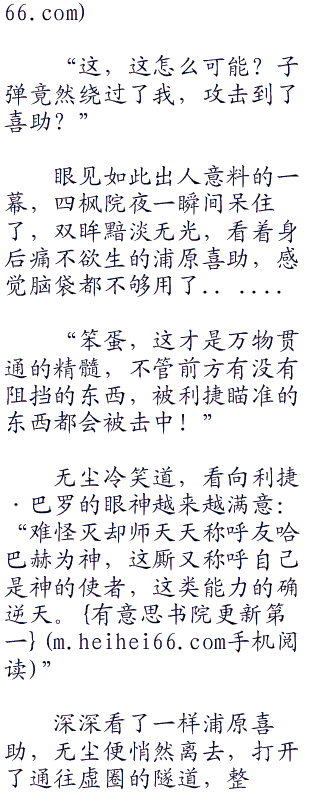 66.com)
“这，这怎么可能？子
弹竟然绕过了我，攻击到了
喜助？”
眼见如此出人意料的一
幕，四枫院夜一瞬间呆住
了，双眸黯淡无光，看着身
后痛不欲生的浦原喜助，感
觉脑袋都不够用了．．．．．．
“笨蛋，这才是万物贯
通的精髓，不管前方有没有
阻挡的东西，被利捷瞄准的
东西都会被击中！”
无尘冷笑道，看向利捷
·巴罗的眼神越来越满意：
“难怪灭却师天天称呼友哈
巴赫为神，这厮又称呼自己
是神的使者，这类能力的确
逆天。{有意思书院更新第
一}(m.heihei66.com手机阅
读)”
深深看了一样浦原喜
助，无尘便悄然离去，打开
了通往虚圈的隧道，整